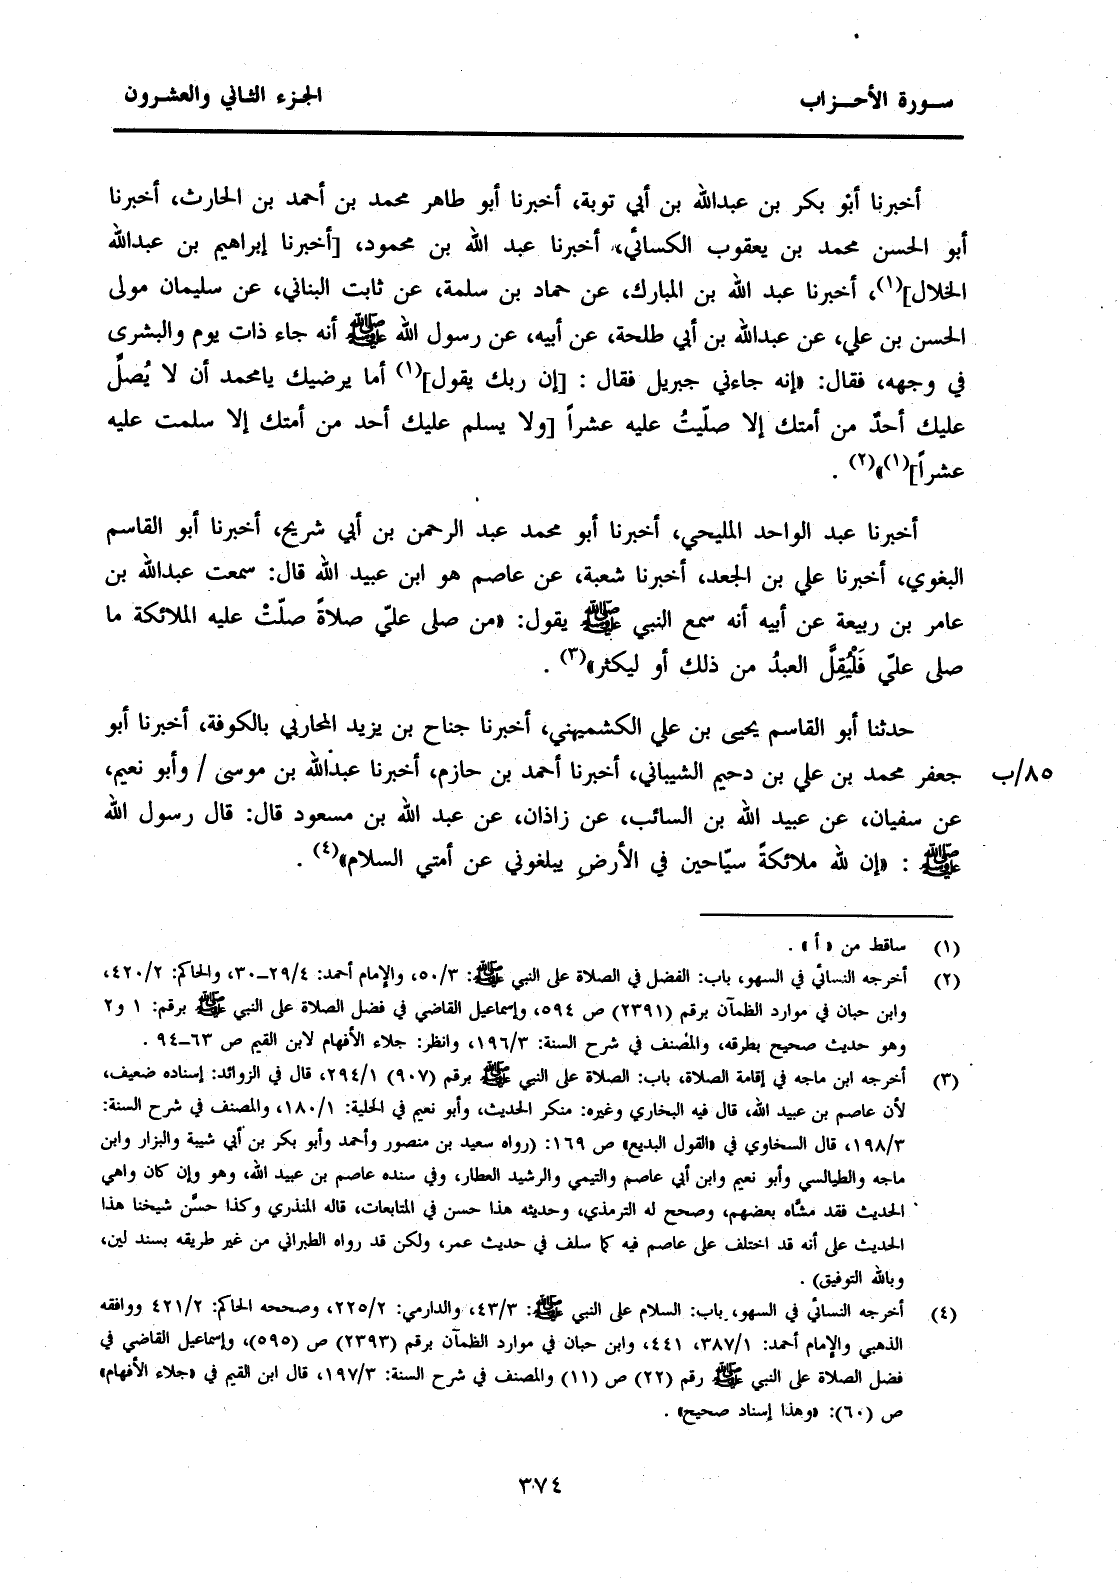 سورة الأحزاب
الجزء الثاني والعشرون
أخبرنا أبو بكر بن عبدالله بن أبي توبة، أخبرنا أبو طاهر محمد بن أحمد بن الحارث، أخبرنا
أبو الحسن محمد بن يعقوب الكسائي، أخبرنا عبد الله بن محمود، [أخبرنا إبراهيم بن عبدالله
الخلال](١)، أخبرنا عبد الله بن المبارك، عن حماد بن سلمة، عن ثابت البناني، عن سليمان مولى
الحسن بن علي، عن عبدالله بن أبي طلحة، عن أبيه، عن رسول الله ﷺ أنه جاء ذات يوم والبشرى
في وجهه، فقال: «إنه جاءني جبريل فقال : [إن ربك يقول](١) أما يرضيك يامحمد أن لا يُصلِّ
عليك أحدٌ من أمتك إلا صلّيتُ عليه عشراً [ولا يسلم عليك أحد من أمتك إلا سلمت عليه
عشراً](١)»(٢) .
أخبرنا عبد الواحد المليحي، أخبرنا أبو محمد عبد الرحمن بن أبي شريح، أخبرنا أبو القاسم
البغوي، أخبرنا علي بن الجعد، أخبرنا شعبة، عن عاصم هو ابن عبيد الله قال: سمعت عبدالله بن
عامر بن ربيعة عن أبيه أنه سمع النبي ﷺ يقول: «من صلى عليّ صلاةً صلّتْ عليه الملائكة ما
صلى عليّ فَلْيُقِلَّ العبدُ من ذلك أو ليكثر»(٣) .
حدثنا أبو القاسم يحيى بن علي الكشميهني، أخبرنا جناح بن يزيد المحاربي بالكوفة، أخبرنا أبو
جعفر محمد بن علي بن دحيم الشيباني، أخبرنا أحمد بن حازم، أخبرنا عبدالله بن موسى / وأبو نعيم، ٨٥/ب
عن سفيان، عن عبيد الله بن السائب، عن زاذان، عن عبد الله بن مسعود قال: قال رسول الله
ﷺ : «إن لله ملائكةً سيّاحين في الأرضِ يبلغوني عن أمتي السلام»(٤) .
(١) ساقط من «أ» .
(٢) أخرجه النسائي في السهو، باب: الفضل في الصلاة على النبي ﷺ: ٥٠/٣، والإمام أحمد: ٢٩/٤-٣٠، والحاكم: ٤٢٠/٢،
وابن حبان في موارد الظمآن برقم (٢٣٩١) ص ٥٩٤، وإسماعيل القاضي في فضل الصلاة على النبي ﷺ برقم: ١ و٢
وهو حديث صحيح بطرقه، والمصنف في شرح السنة: ١٩٦/٣، وانظر: جلاء الأفهام لابن القيم ص ٦٣-٩٤ .
(٣) أخرجه ابن ماجه في إقامة الصلاة، باب: الصلاة على النبي ﷺ برقم (٩٠٧) ٢٩٤/١، قال في الزوائد: إسناده ضعيف،
لأن عاصم بن عبيد الله، قال فيه البخاري وغيره: منكر الحديث، وأبو نعيم في الحلية: ١٨٠/١، والمصنف في شرح السنة:
١٩٨/٣، قال السخاوي في «القول البديع» ص ١٦٩: (رواه سعيد بن منصور وأحمد وأبو بكر بن أبي شيبة والبزار وابن
ماجه والطيالسي وأبو نعيم وابن أبي عاصم والتيمي والرشيد العطار، وفي سنده عاصم بن عبيد الله، وهو وإن كان واهي
الحديث فقد مشّاه بعضهم، وصحح له الترمذي، وحديثه هذا حسن في المتابعات، قاله المنذري وكذا حسَّن شيخنا هذا
الحديث على أنه قد اختلف على عاصم فيه كما سلف في حديث عمر، ولكن قد رواه الطبراني من غير طريقه بسند لين،
وبالله التوفيق) .
(٤) أخرجه النسائي في السهو، باب: السلام على النبي ﷺ: ٤٣/٣، والدارمي: ٢٢٥/٢، وصححه الحاكم: ٤٢١/٢ ووافقه
الذهبي والإمام أحمد: ٣٨٧/١، ٤٤١، وابن حبان في موارد الظمآن برقم (٢٣٩٣) ص (٥٩٥)، وإسماعيل القاضي في
فضل الصلاة على النبي ﷺ رقم (٢٢) ص (١١) والمصنف في شرح السنة: ١٩٧/٣، قال ابن القيم في «جلاء الأفهام»
ص (٦٠): «وهذا إسناد صحيح» .
٣٧٤